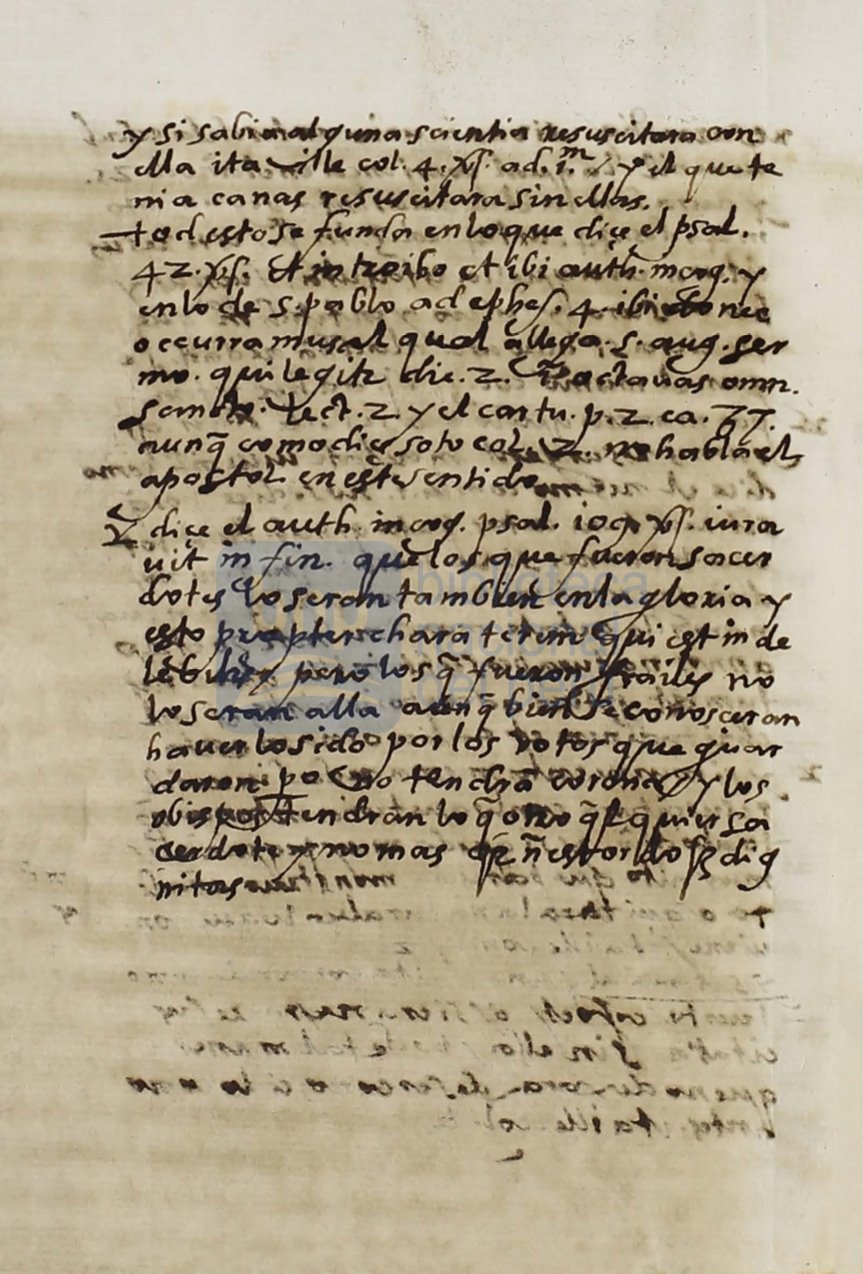 y si sabia alguna scientia resuscitara con
ella ita ille col. 4. ad. 1.m y el que te
nia canas resuscitara sin ellas.
todesto se funda enloque diçe el psal.
42. Et introibo et ibi auth. incog. y
enlo de S. pablo ad ephes. 4. ibi donec
occurramus al qual allega. S. aug. ser
mo. qui legitr die. 2. octavas omn.
Sancto. Lect. 2. y el cartu. p. 2. ca.
aunq̃ como diçe soto col. 2. no habla el
apostol en este sentido
Y diçe el auth. incog. psal. 109. iura
uit in fin. que los que fueron sacer
dotes lo seran tambien enla gloria y
esto propter charaterem qui est inde
lebilis, pero los q̃ fueron frailes no
lo seran alla aunq̃ bien se conosceran
hauerlo sido por los votos que guar
daron. po no tendrã corona y los
obispos tendran lo q̃ otro qualquier sa
cerdote y no mas qr ñ est ordo s; dig
nitas
biblioteca